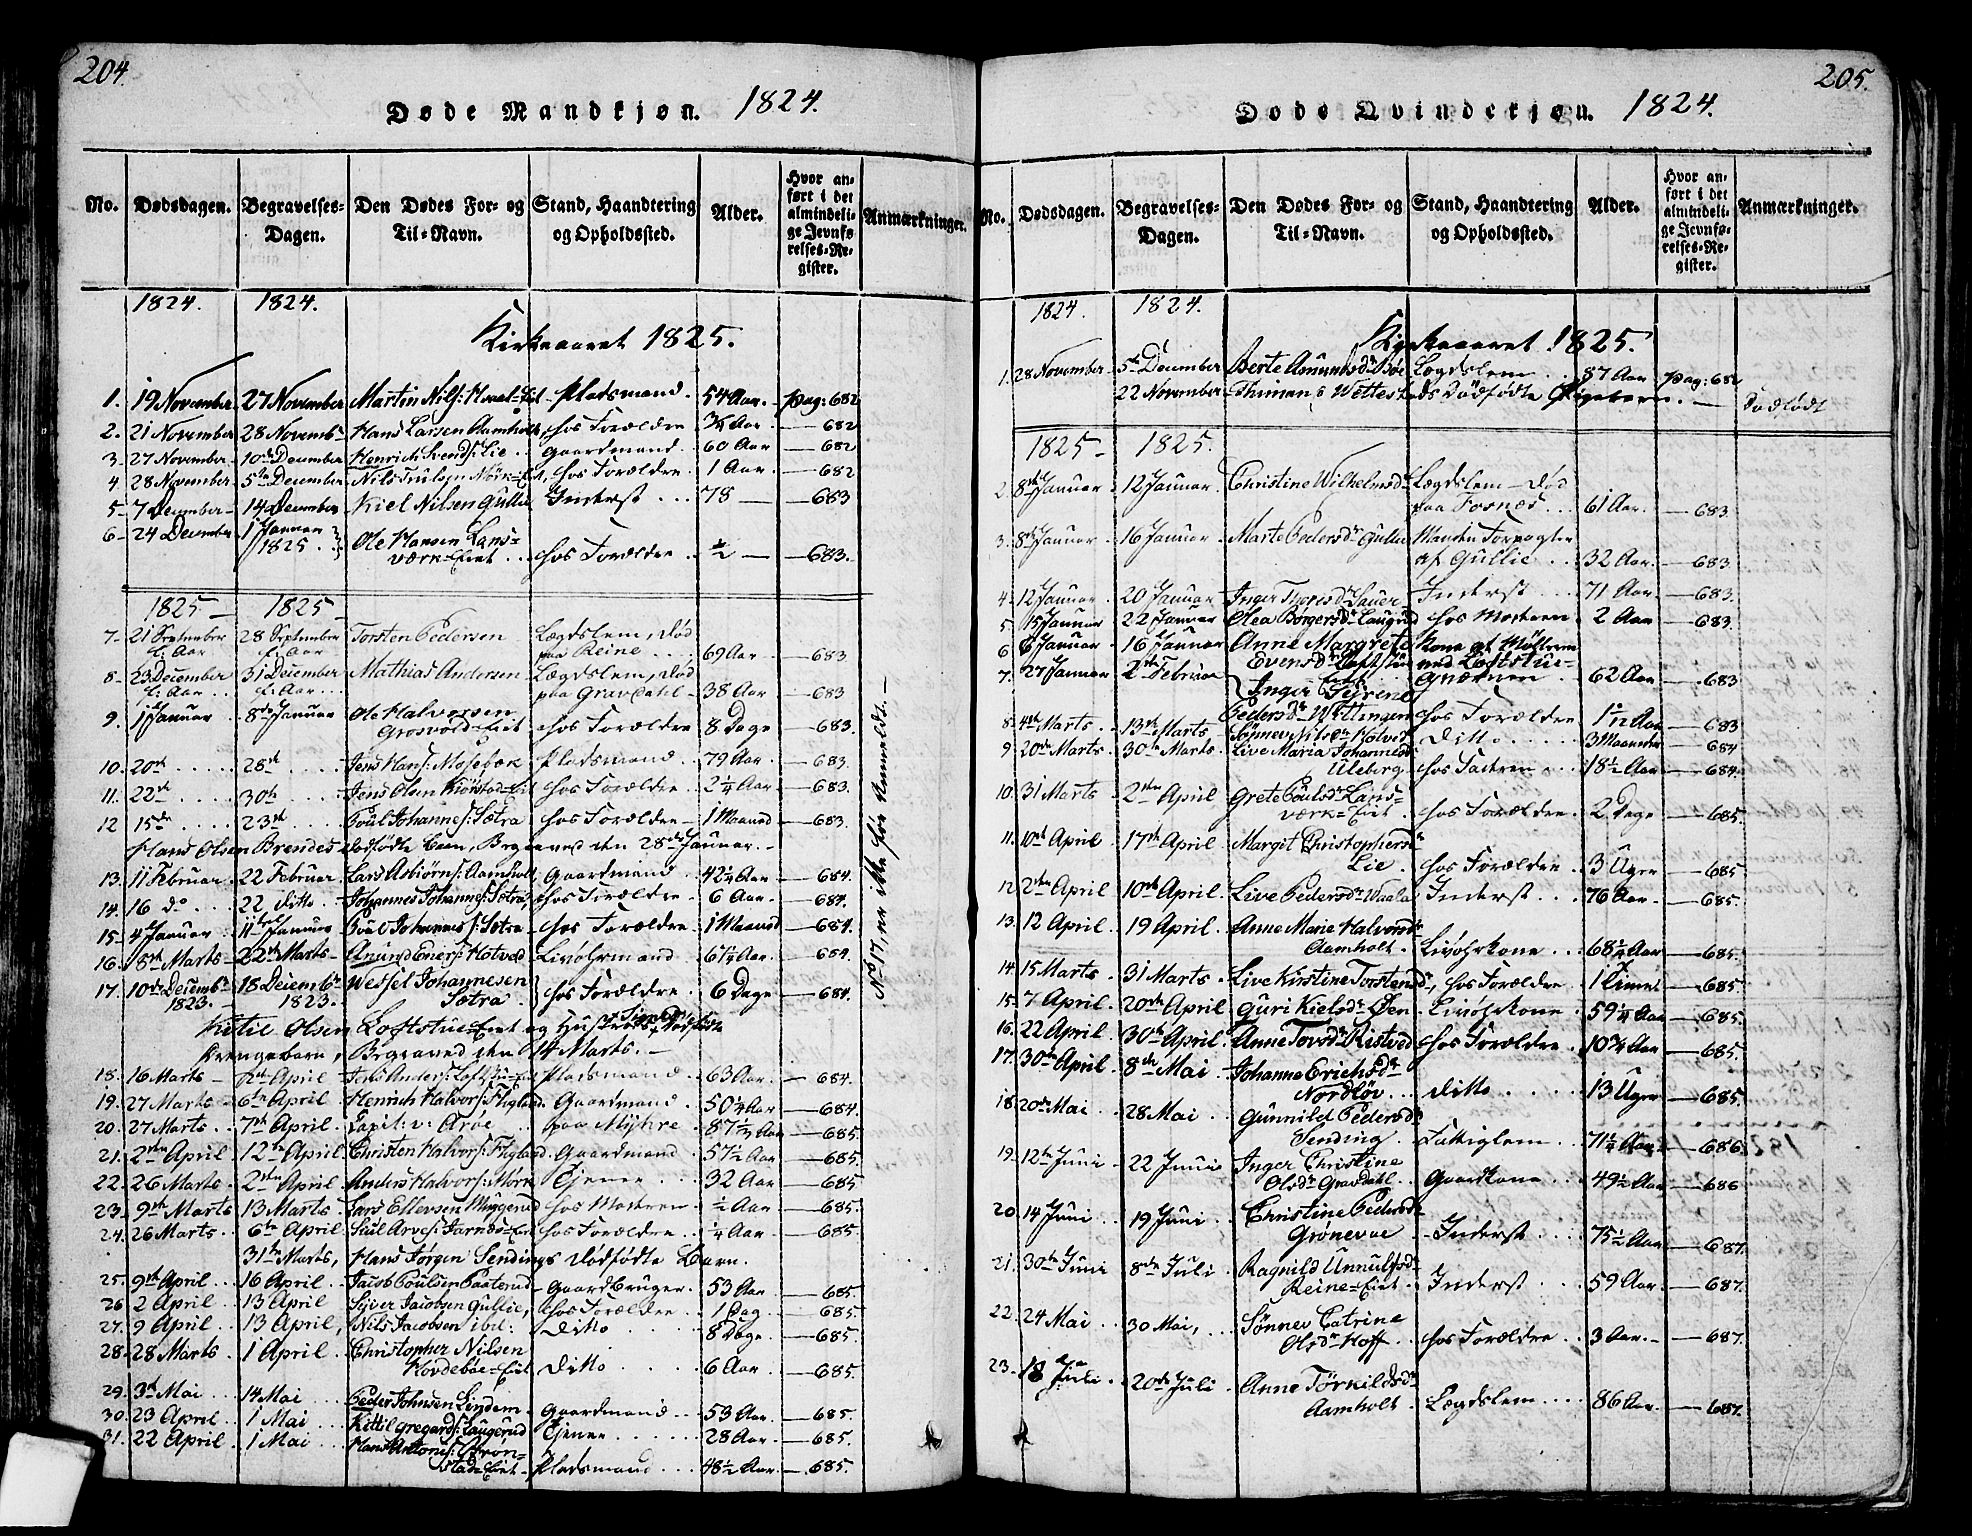 204.
Døde Mandkjøn. 1824.
No. Dødsdagen. Begravelses-Dagen. Den Dødes For- og Til-Navn. Stand, Haandtering og Opholdssted. Alder. Hvor anført i det almindelige Jevnførelses-Register. Anmærkninger.
1824. 1824.
Kirkeaaret 1825.
1. 19 November 27 November Martin Nils: Hvael-Eiet Pladsmand. 54 Aar. Pag: 682
2. 21 November 28 Novembr Hans Larsen Aamholt, hos Forældre ¾ Aar. 682
3. 27 November 10de December Henrich Svends: Lie gaardmand. 60 Aar 682
4 28 November 5te December Nils Trulsen Mörk-Eiet, hos Forældre 1 Aar. 682
5. 7 December 14 December Kiel Nilsen Gullie Inderst 78 — 683
6. 24 December 1 Januar 1825. Ole Hansen Lans=
værk=Eiet hos Forældre ½ — 683.
1825 1825
7. 21 September f: Aar 28 September f: Aar Torsten Pedersen Lægdslem, død
paa Reine 69 Aar 683
8. 23 December f: Aar 31 December f: Aar Mathias Andersen Lægdslem, død
paa Gravdahl 38 Aar 683
9. 1 Januar 8de Januar Ole Halvorsen
Grosvold=Eiet hos Forældre 8 Dage 683.
10. 20de 28de Jens Hans: Mosebæk Pladsmand 79 Aar 683.
11. 22de 30te Jens Olsen Kiörstad=Eiet hos Forældre 2¼ Aar 683.
12 15de 23de Poul Johannes: Sætra hos Forældre 1 Maaned 683.
Hans Olsen Brendes dödfödte Barn, Begraved den 28de Januar.
13. 11 Februar 22 Februar Lars Asbiörns: Aamholt Gaardmand 42¼ Aar 684.
14. 16 do 22 ditto Johannes Johannes: Sætra, hos Forældre 6 Aar. 684.
15. 4 Januar 11 Januar Poul Johannes: Sætra hos Forældre 1 Maaned 684.
16. 8de Marts 22de Marts Anund Eners: Hotved Livöhrmand 61¼ Aar 684.
17. 10de Decembr 1823. 18 Decembr 1823. Wessel Johannesen
Sætra hos Forældre 6 Dage 684.
Kitil Olsen Loftstue=Eiet og Hustrues dödfödte
Drengebarn, Begraved den 14 Marts.
18. 16 Marts 2den April Jens Anders: Loftstu=Eiet Pladsmand 63 Aar 684.
19. 27 Marts 6te April Henrich Halvors: Figland Gaardmand 50¼ Aar 684.
20. 27 Marts 7de April Capit: v: Aröe paa Myhre 685.
21. 2den April 12te April Christen Halvors: Figland Gaardmand 57½ Aar 685.
22. 26 Marts 2den April Anders Halvors: Mörk Tjener 32 Aar 685
23. 9de Marts 13 Marts Lars Ellevsen Muggerud hos Moderen ½ Aar 685.
24. 26 Marts 6te April hos Forældre ¼ Aar 685
31te Marts, Hans Jörgen Sendings dödfödte Barn.
25. 9de April 16 April Jacob Poulsen Gaardbruger 53 Aar 685.
26 2 April 13 April Syver Jacobsen Gullie, hos Forældre 1 Dag 685.
27. 9 April 13 April, Nils Jacobsen ibid: Ditto 8 Dage 685.
28. 28 Marts 1 April Christopher Nilsen
Hovdeböe=Eiet Ditto 6 Aar 685.
29. 3de Mai 14 Mai Peder Johnsen Lindem Gaardmand 53 Aar 685.
30. 23 April 1 Mai Kittil Gregards: Laugerud Tjener 28 Aar 685.
31. 22 April 1 Mai Hans Antons: Bron=
stad=Eiet Pladsmand 48½ Aar 685.
No 17, er ikke för Anmeldt.
205.
Døde Qvindekjøn. 1824.
No. Dødsdagen. Begravelses-Dagen. Den Dødes For- og Til-Navn. Stand, Haandtering og Opholdssted. Alder. Hvor anført i det almindelige Jevnførelses-Register. Anmærkninger.
1824. 1824.
Kirkeaaret 1825.
1. 28 November 5te December Berte Amundsdr Böe Lægdslem 87 Aar Pag: 682
22 November Thimans Wettestads Dödfödte Pigebarn. Dødfödt
1825 1825.
2. 8de Januar 12 Januar. Christine Wilhelmsdr Lægdslem død
paa Fosnæs 61 Aar. 683.
3. 8de Januar 16 Januar Marte Pedersdr Gullie Manden Forpagter
af Gullie 32 Aar 683.
4. 12 Januar 20 Januar Inger Sauer Inderst 71 Aar 683.
5 15 Januar 22 Januar Olea Borgersdr Laugrud hos Moderen 2 Aar 683.
6 6 Januar 16 Januar Anne Margrete
Evensdr Loftstu= Kone af
7. 27 Januar 2den Februar Inger Severine 62 Aar 683
8. 4de Marts 13de Marts Pedersdr Wettingen hos Forældre 683
9 20de Marts 30te Marts Sönneve Nilsdr Hotved Ditto 3 Maaneder 684
Live Maria Johannesdr
Uleberg hos Faderen 18½ Aar 684.
10. 31 Marts 2den April Grete Poulsdr Lans=
værk=Eiet hos Forældre 2 Dage 685.
11. 10de April 17de April Margit Christophersdr
Lie hos Forældre 3 Uger 685
12 2den April 10de April Live Pedersdr Inderst 76 Aar 685.
13. 12 April 19 April. Anne Marie Halvorsdr
Aamholt. Livöhrkone 68½ Aar 685.
14. 15 Marts 31 Marts Live Kirstine Torstensdr, hos Forældre 1 Time 685.
15. 7 April 20de April Guri Kielsdr Øen Livöhrkone 59¼ Aar 685.
16. 22 April 30te April Anne Tovsdr Ristved hos Forældre 10¾ Aar 685.
17. 30te April 8de Mai Johanne Erichsdr
Nordlöv Ditto 13 Uger 685.
18. 20de Mai 28 Mai Gunnild Pedersdr
Sending Fattiglem 71¼ Aar 686.
19. 12te Juni 22 Juni Inger Christine
Olsdr Gravdahl Gaardkone 49½ Aar 686
20. 14 Juni 19 Juni Christine Pedersdr
Grönevae Inderst 75½ Aar 687.
21. 30te Juni 8de Juli Ragnild Unnulfsdr
Reine=Eiet Inderst 59 Aar 687.
22. 24 Mai 30 Mai, Sönnev Catrine
Olsdr Hoff hos Forældre 3 Aar. 687.
23. 18 Juli 20de Juli Anne Törkildsdr
Aamholt Lægdslem 86 Aar 687.